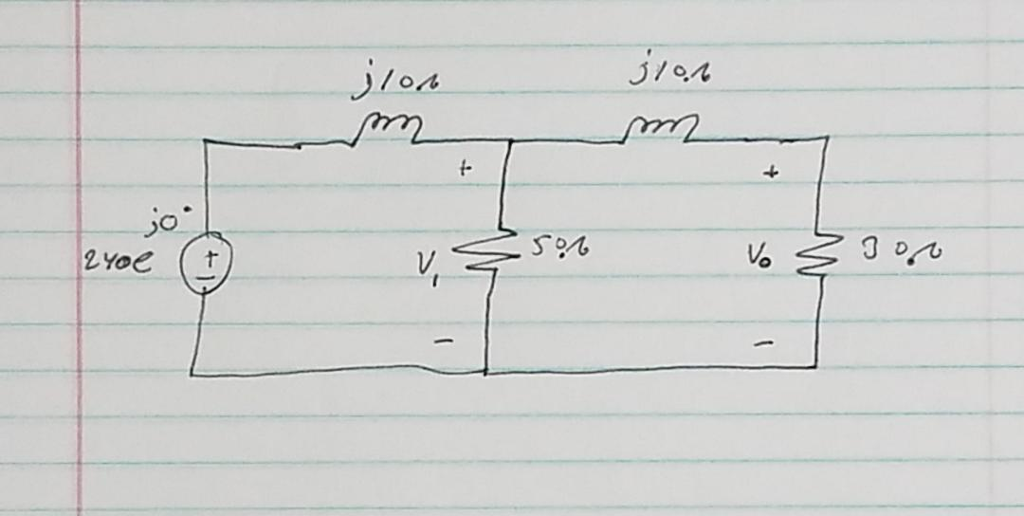 j10Ω
j10Ω
+
+
j0°
240e
+
-
V₁
50Ω
V₀
30Ω
-
-